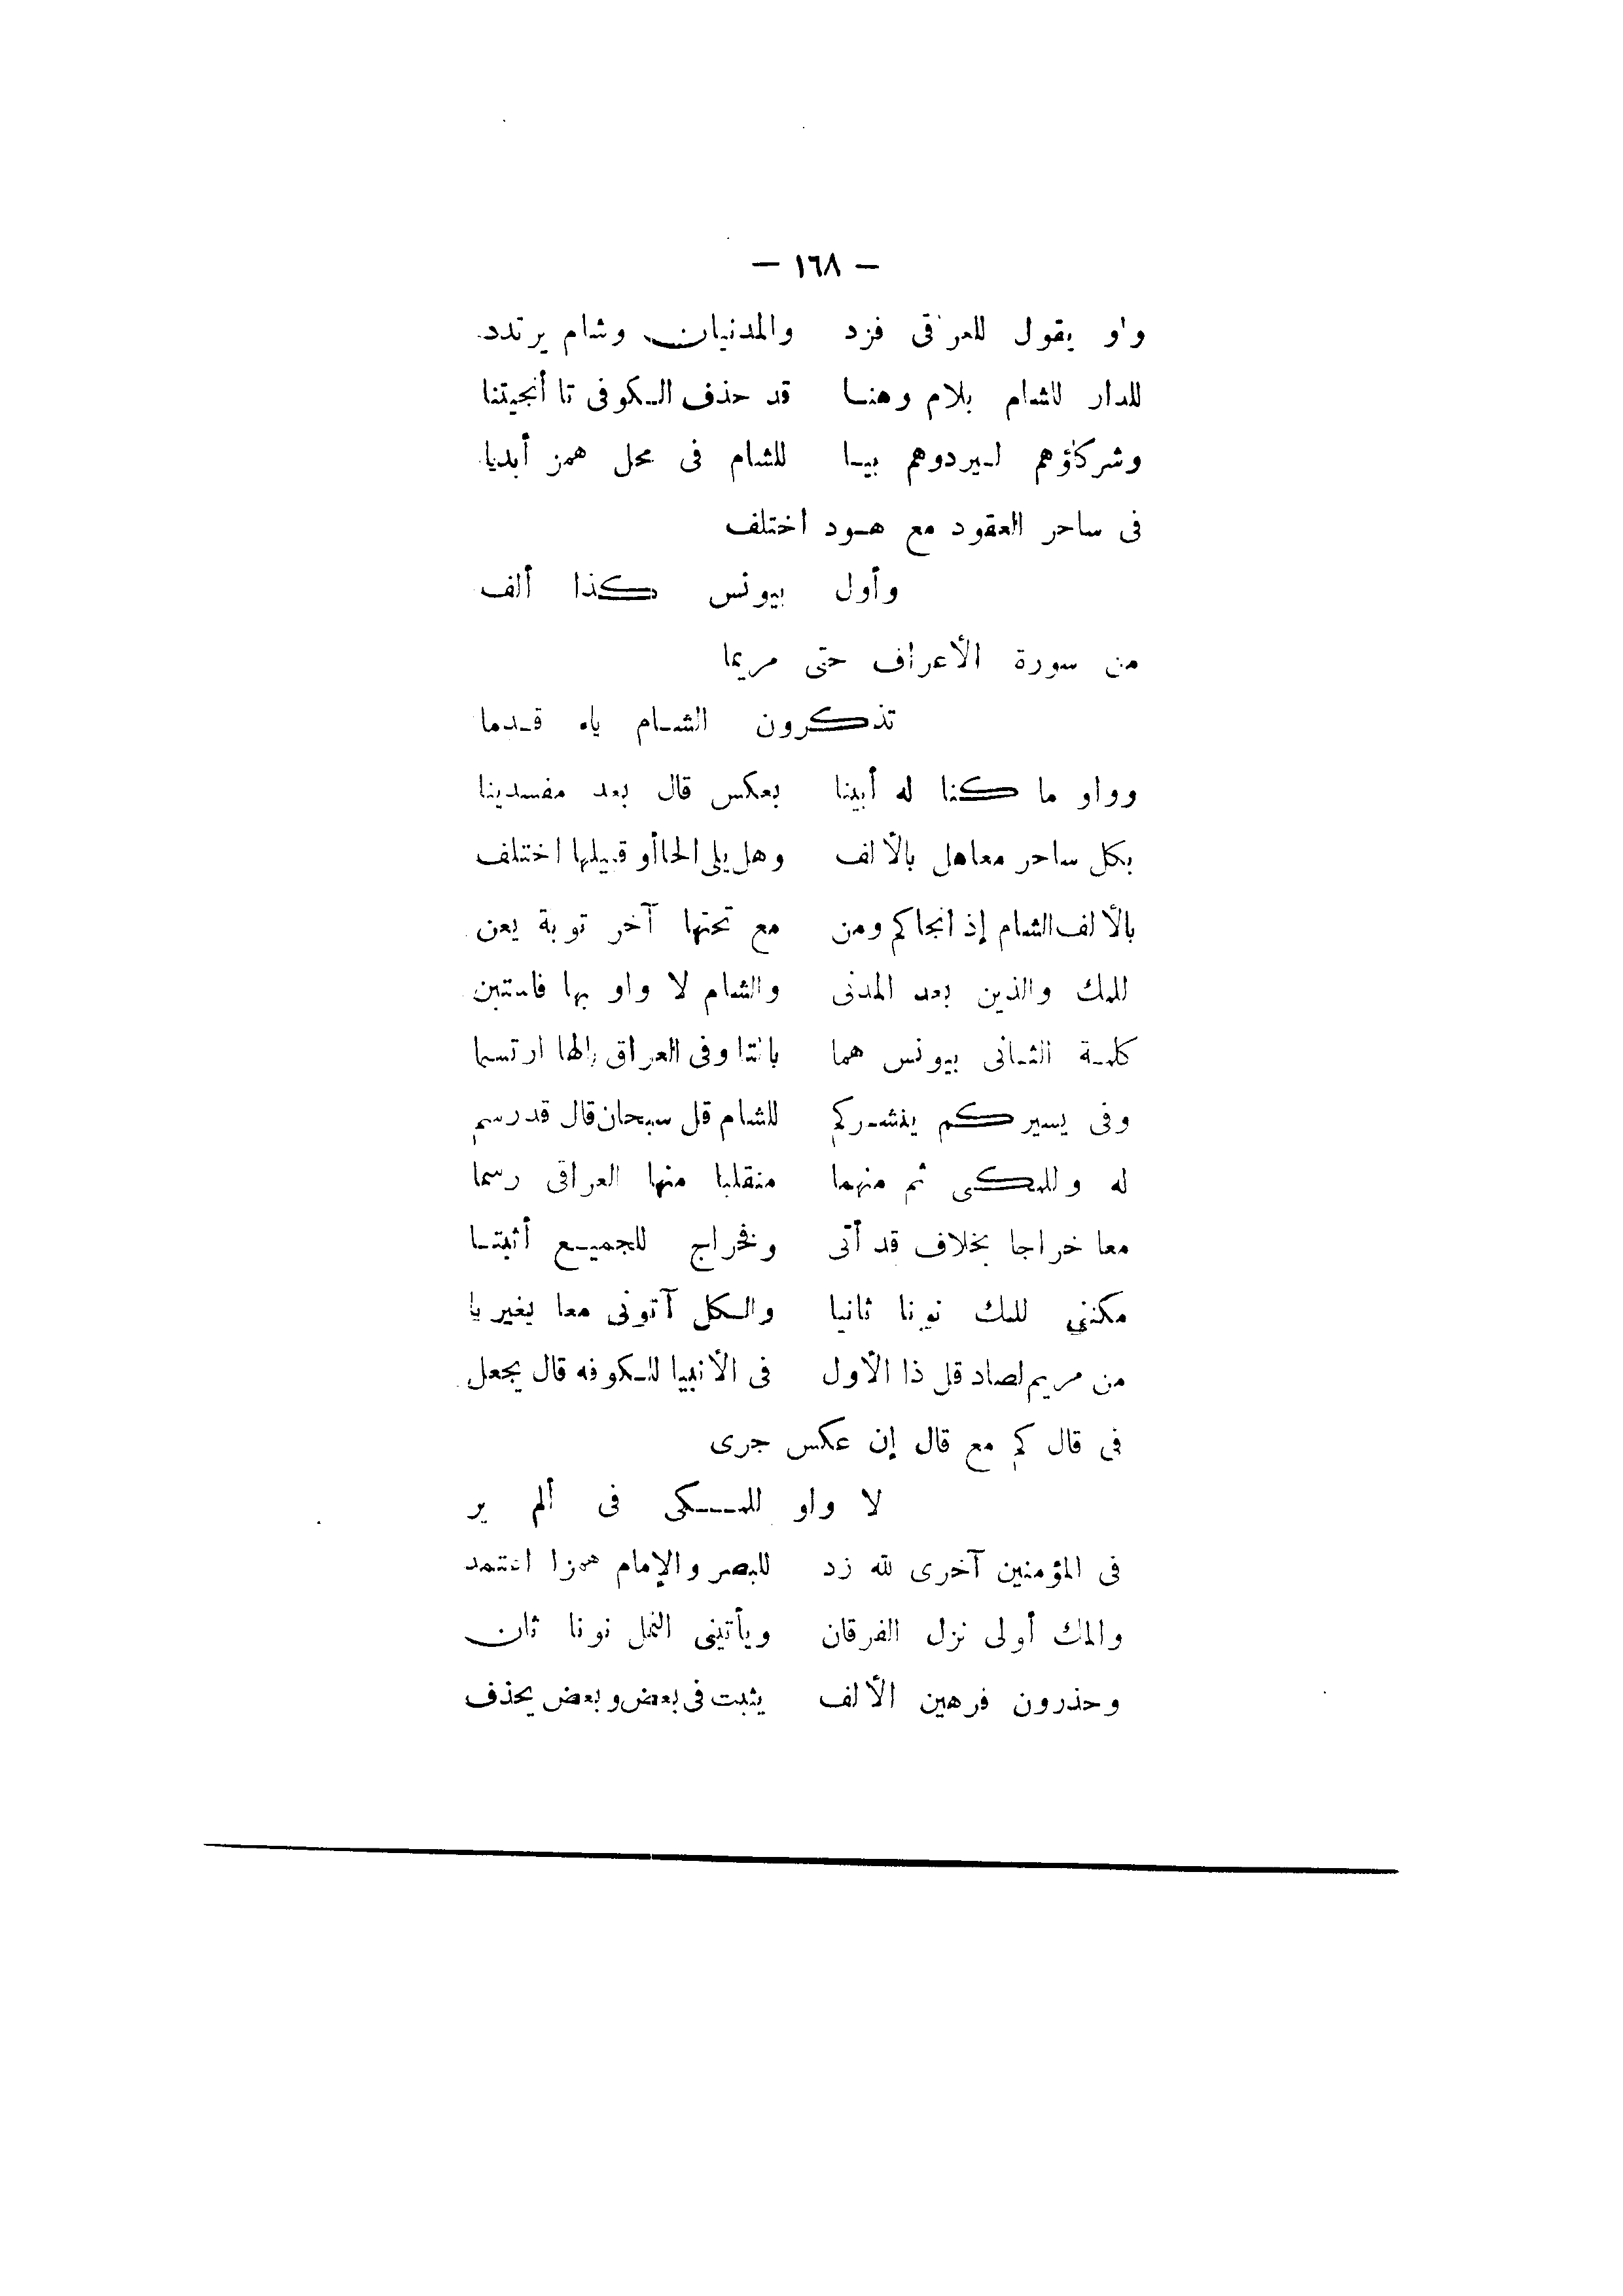 — ١٦٨ —
واو يقول للعراقى فزد والمدنيان وشام يرتدد
للدار للشام بلام وهنا قد حذف الكوفى تا أنجيتنا
وشركاؤهم ليردوهم بيا للشام فى محل همز أبديا
فى ساحر العقود مع هود اختلف
وأول بيونس كذا ألف
من سورة الأعراف حتى مريما
تذكرون الشام ياء قدما
وواو ما كنا له أبينا بعكس قال بعد مفسدينا
بكل ساحر معا هل بالألف وهل يلى الحا أو قبيلها اختلف
بالألف الشام إذ أنجاكم ومن مع تحتها آخر توبة يعن
للمك والذين بعد المدنى والشام لا واو بها فاستبن
كلمة الثانى بيونس هما بالتا وفى العراق بالها ارتسما
وفى يسيركم ينشركم للشام قل سبحان قال قد رسم
له وللمكى ثم منهما منقلبا منها العراقى رسما
معا خراجا بخلاف قد أتى وفخراج للجميع أثبتا
مكننى للمك نونا ثانيا والكل آتونى معا بغير يا
من مريم لصاد قل ذا الأول فى الأنبيا للكوفه قال يجعل
فى قال كم مع قال إن عكس جرى
لا واو للمكى فى ألم ير
فى المؤمنين آخرى لله زد للبصر والإمام همزا اعتمد
والمك أولى نزل الفرقان ويأتينى النمل نونا ثان
وحذرون فرهين الألف يثبت فى بعض وبعض يحذف